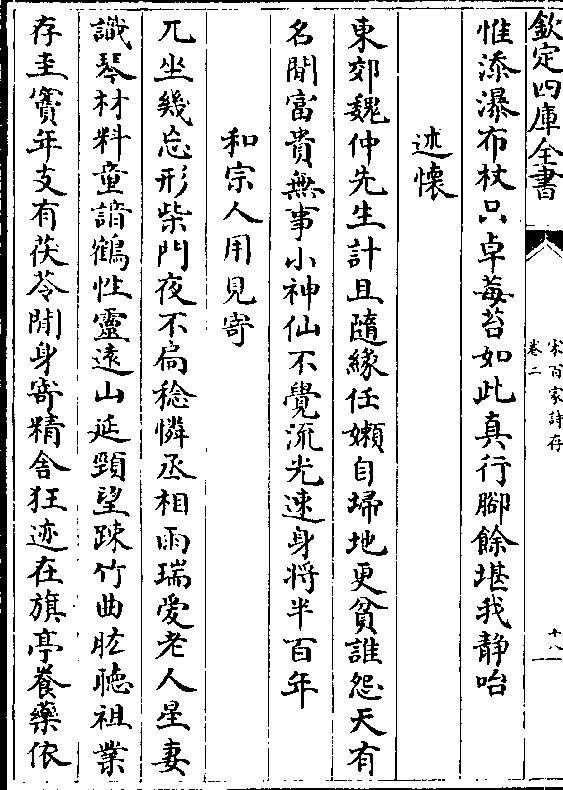 欽定四庫全書
宋百家詩存
卷二
十八
惟添瀑布杖只卓莓苔如此真行腳餘堪我靜咍
述懷
東郊魏仲先生計且隨緣任嬾自埽地更貧誰怨天有
名閒富貴無事小神仙不覺流光速身将半百年
和宗人用見寄
兀坐幾忘形柴門夜不扃稔憐丞相雨瑞愛老人星妻
識琴材料童諳鶴性靈遠山延頸望踈竹曲肱聴祖業
存圭竇年支有茯苓閒身寄精舍狂迹在旗亭養藥依